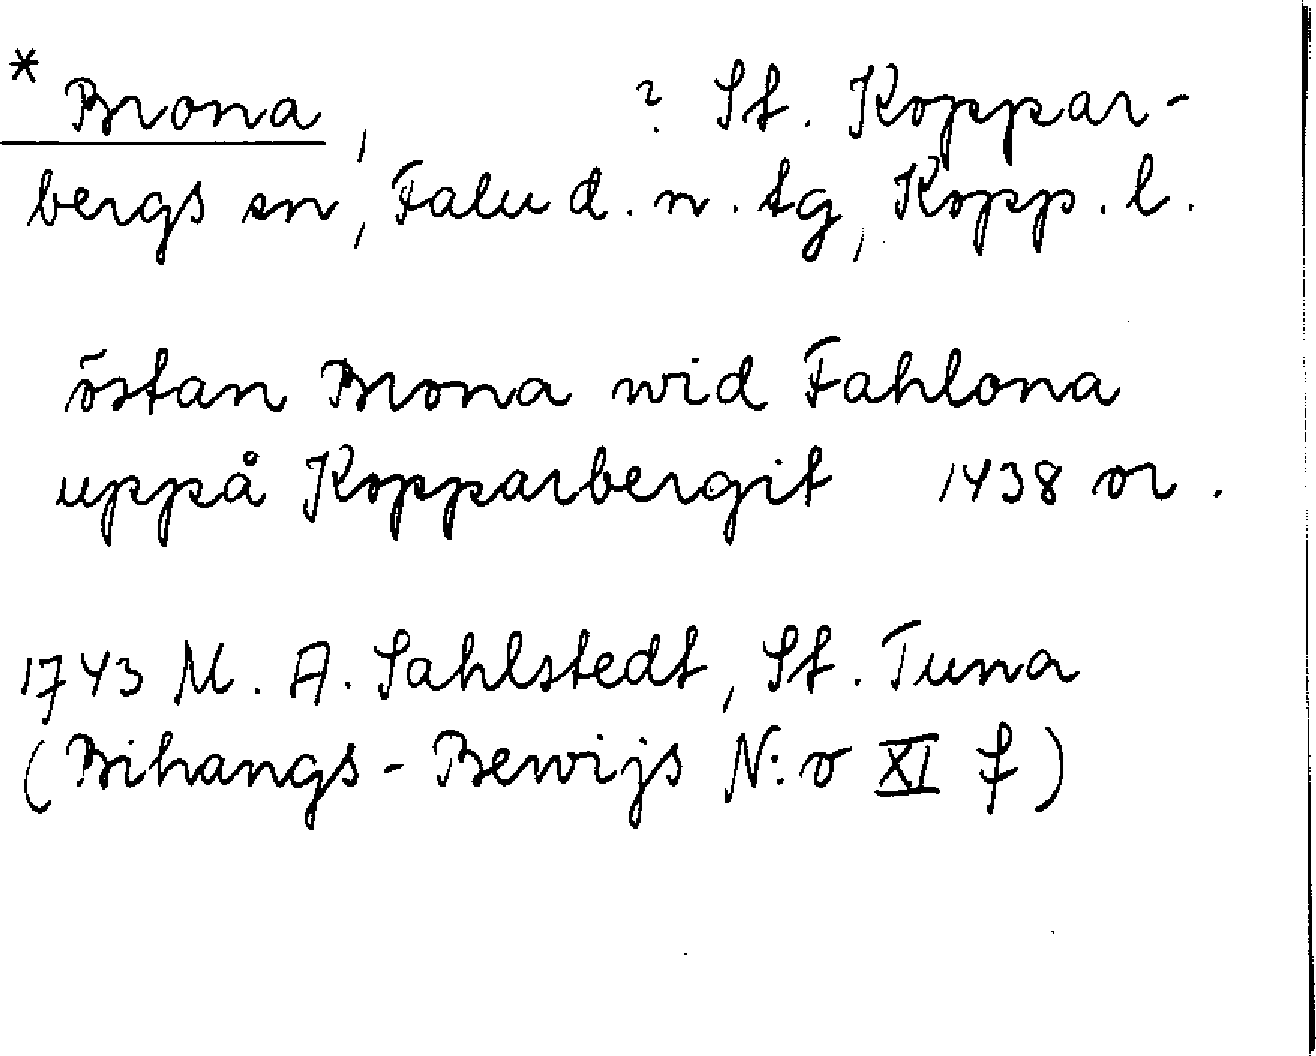 * Brona, ? St. Koppar-
bergs sn, Falu d. n. tg, Kopp. l.
östan Brona wid Fahlona
uppå Kopparbergit 1438 or.
1743 M. A. Sahlstedt, St. Tuna
(Bihangs-Bewijs N:o XI f)